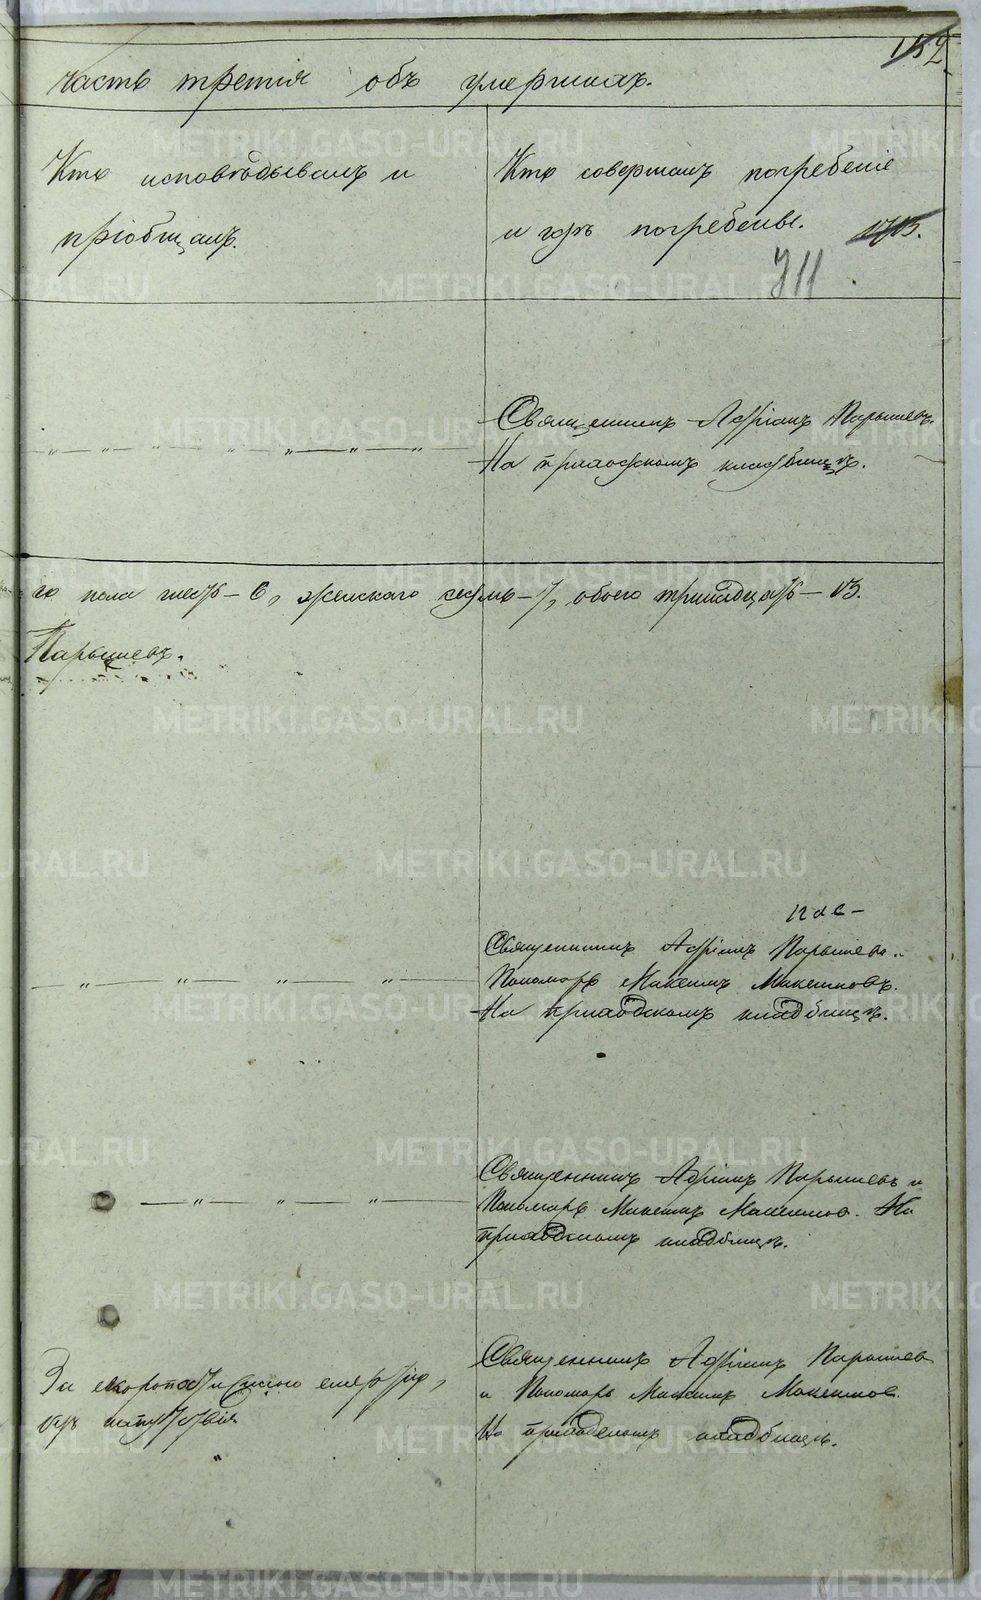 152
часть третія объ умершихъ.
Кто исповѣдывалъ и
пріобщалъ.
Кто совершалъ погребеніе
и гдѣ погребены.
711
Священникъ Адріанъ Парышевъ.
На приходскомъ кладбищѣ.
го пола шесть – 6, женскаго семь – 7, обоего тринадцать – 13.
Парышевъ.
Священникъ Адріанъ Парышевъ.
Пономарь Максимъ Макшиновъ.
На приходскомъ кладбищѣ.
Священникъ Адріанъ Парышевъ и
Пономарь Максимъ. На
приходскомъ кладбищѣ.
За скоропостижною смертію,
безъ напутствія
Священникъ Адріанъ Парышев
и Пономарь Максимъ
На приходскомъ кладбищѣ.
METRIKI.GASO-URAL.RU